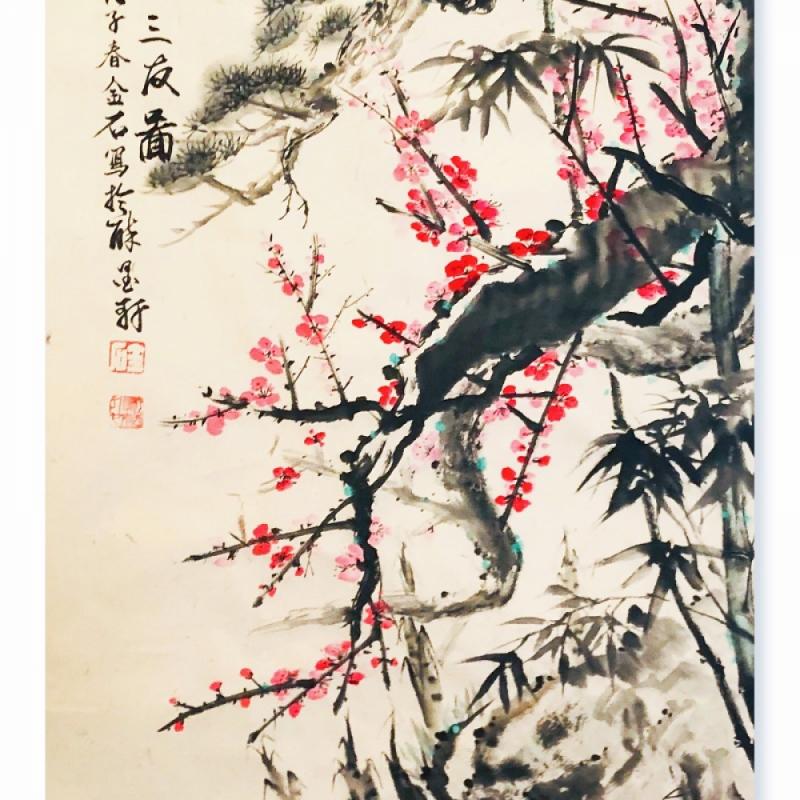 三友圖
子春金石寫於醉墨軒